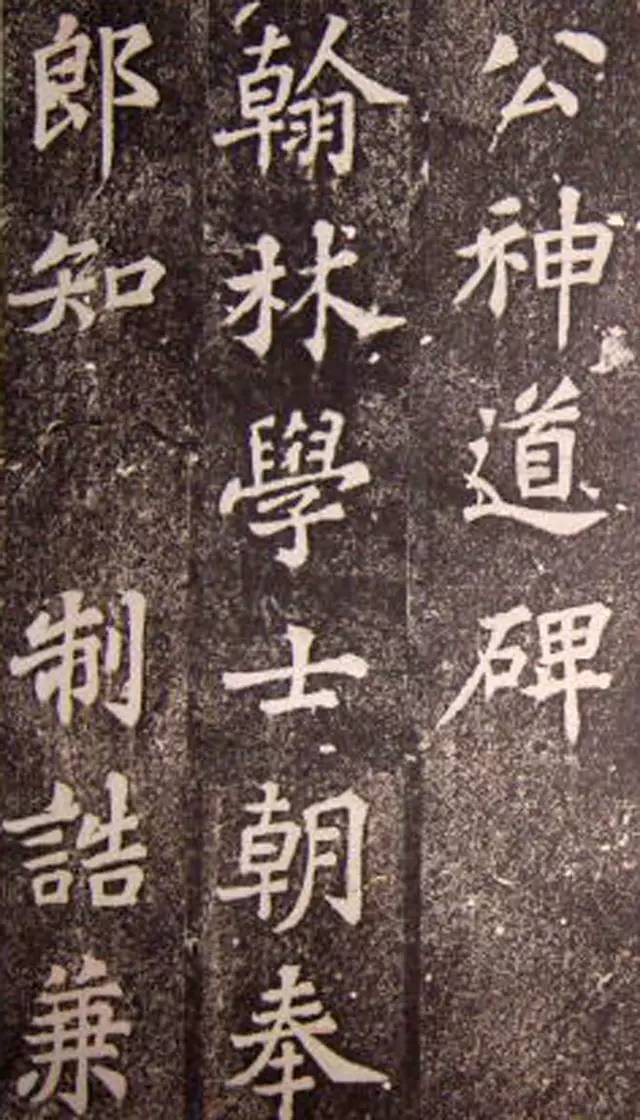 公神道碑
翰林學士朝奉
郎知 制誥兼